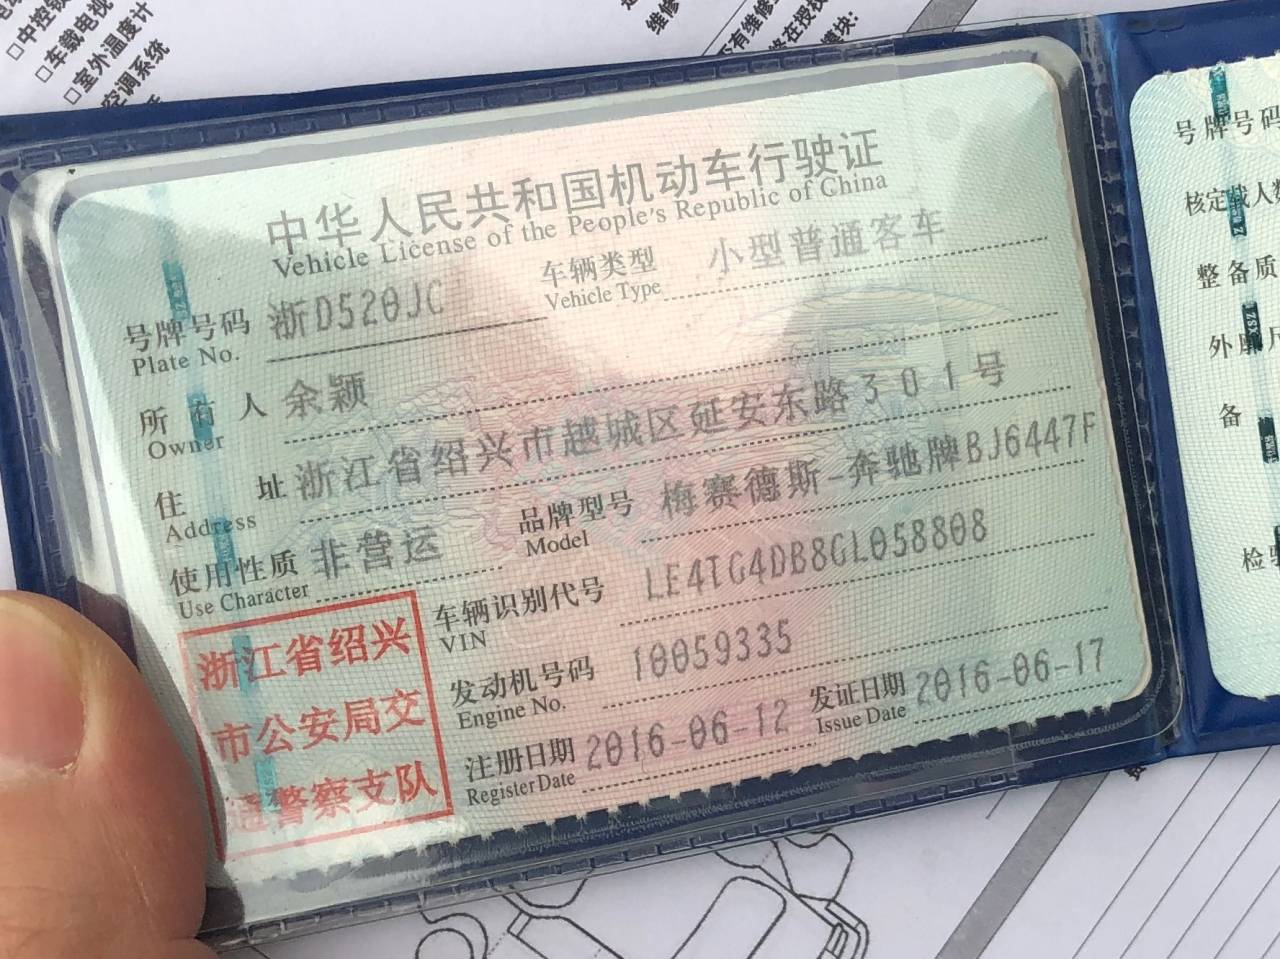 中控锁
□车载电视
□室外温度计
空调系统
维修
中华人民共和国机动车行驶证
Vehicle License of the People's Republic of China
号牌号码 浙D520JC 车辆类型 小型普通客车
Plate No. Vehicle Type
所有人 余颖
Owner
住址 浙江省绍兴市越城区延安东路301号
Address
使用性质 非营运 品牌型号 梅赛德斯-奔驰牌BJ6447F
Use Character Model
车辆识别代号 LE4TG4DB8GL058808
VIN
发动机号码 10059335
Engine No.
注册日期 2016-06-12 发证日期 2016-06-17
Register Date Issue Date
浙江省绍兴
市公安局交
通警察支队
号牌号码
核定载人数
整备质
外廓尺
备
检验